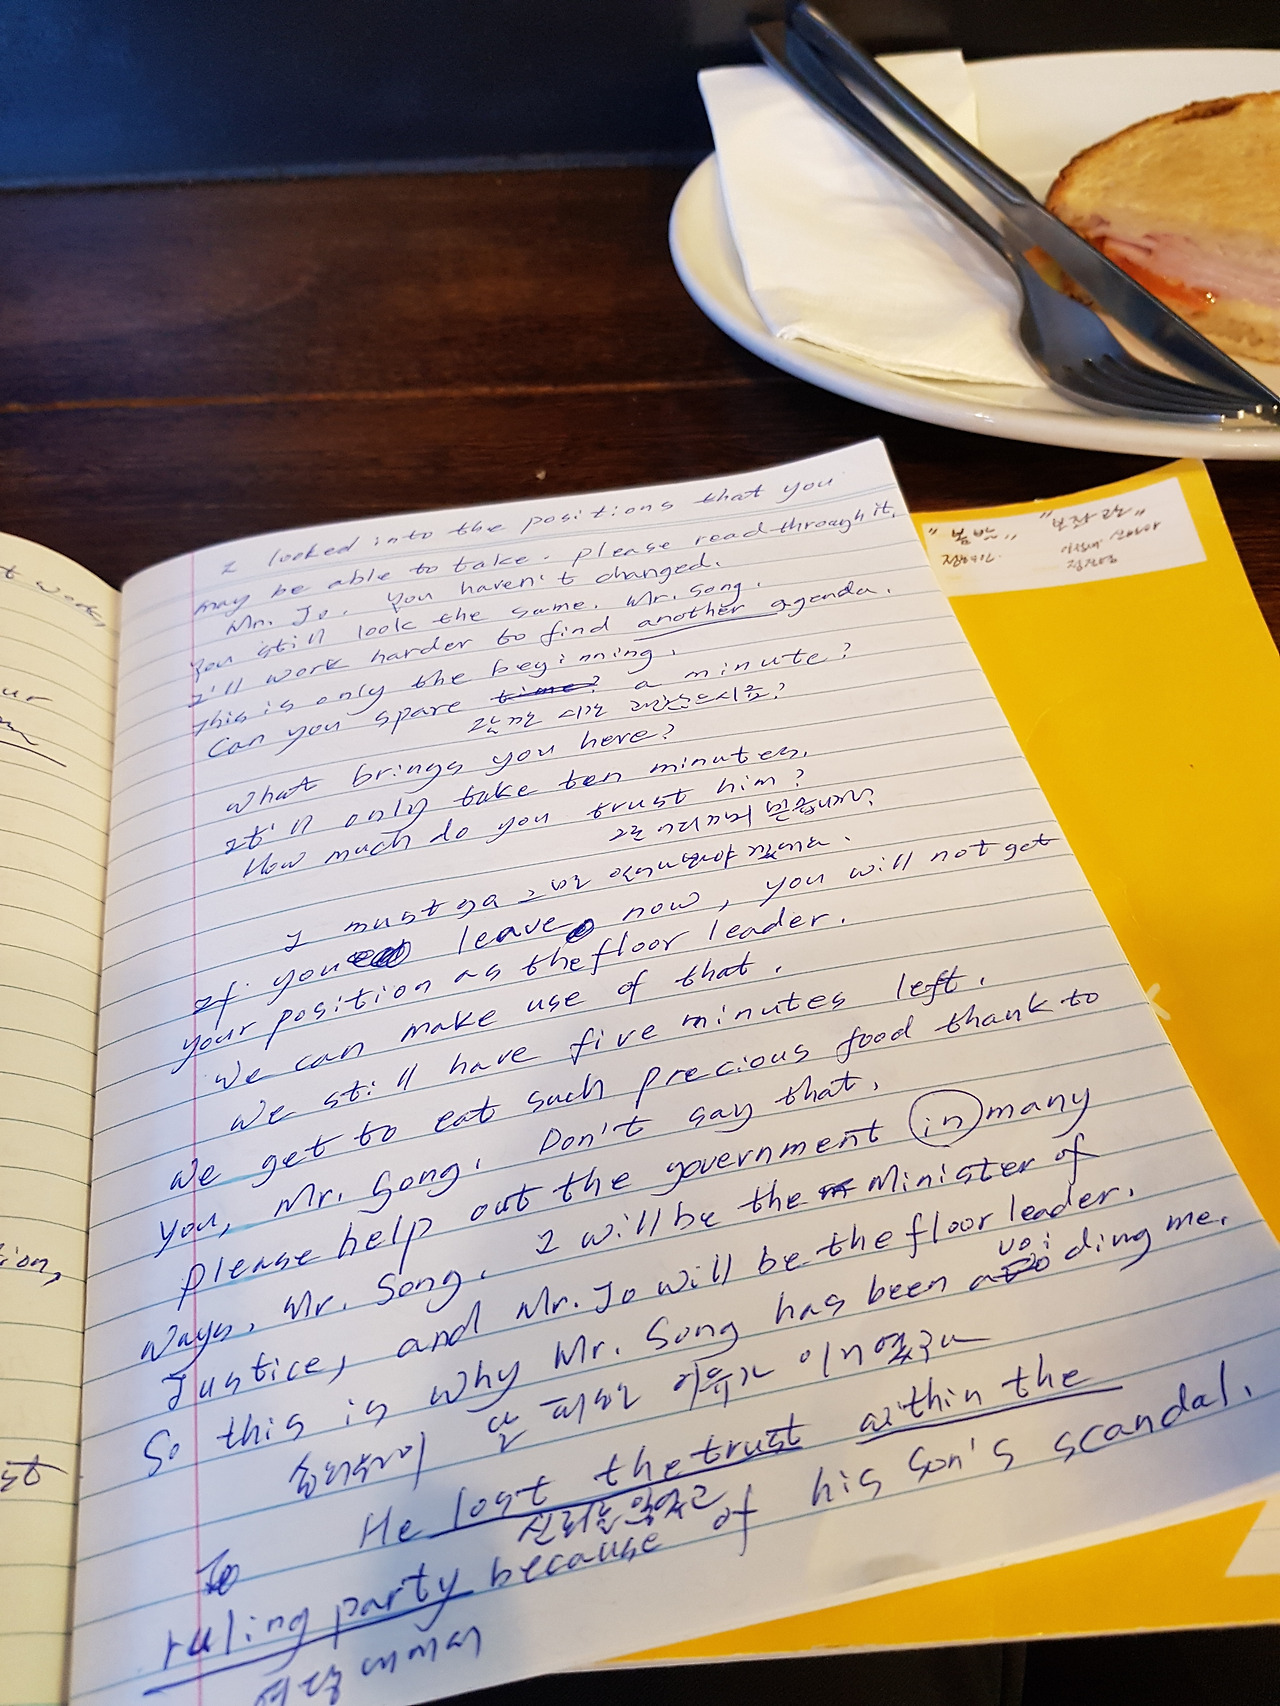 I looked into the positions that you
may be able to take. Please read through it.
Mr. Jo. You haven't changed.
You still look the same. Mr. Song.
I'll work harder to find another agenda.
This is only the beginning.
Can you spare time? a minute?
잠깐 시간 괜찮으시죠?
What brings you here?
It'll only take ten minutes.
How much do you trust him?
그를 어디까지 믿습니까?
I must go
If you leave now, you will not get
your position as the floor leader.
We can make use of that.
We still have five minutes left.
We get to eat such precious food thank to
you, Mr. Song. Don't say that.
Please help out the government in many
ways, Mr. Song. I will be the Minister of
Justice, and Mr. Jo will be the floor leader.
So this is why Mr. Song has been avoiding me.
피한 이유가 이거였구나
He lost the trust within the
신뢰를 잃었고
ruling party because of his son's scandal.
여당 내에서
"봄밤" "보좌관"
정해인
이정재 신민아
정진영
ur
ion,
st